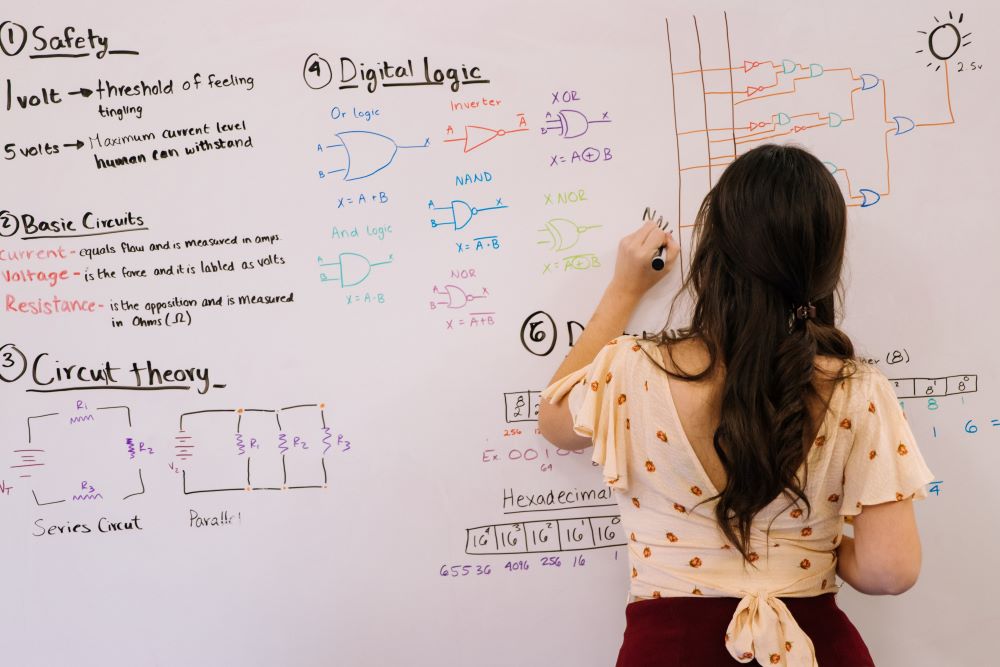 ① Safety
1 volt → threshold of feeling
tingling
5 volts → Maximum current level
human can withstand
② Basic Circuits
Current - equals flow and is measured in amps.
Voltage - is the force and it is labled as volts
Resistance - is the opposition and is measured
in Ohms (Ω)
③ Circut theory
R₁
R₂
R₃
VT
Series Circut
V₂
R₁
R₂
R₃
Parallel
④ Digital logic
Or logic
A
B
X
X = A + B
And logic
A
B
X
X = A - B
Inverter
A
A̅
NAND
A
B
X
X = A̅ ̅-̅ ̅B̅
NOR
A
B
X
X = A̅ ̅+̅ ̅B̅
X OR
A
B
X
X = A ⊕ B
X NOR
X = A̅ ̅⊕̅ ̅B̅
2.5v
⑤ D
(8)
8¹ 8⁰
8 1
256
Ex. 001
64
1 6 =
4
Hexadecimal
16⁴ 16³ 16² 16¹ 16⁰
65536 4096 256 16 1